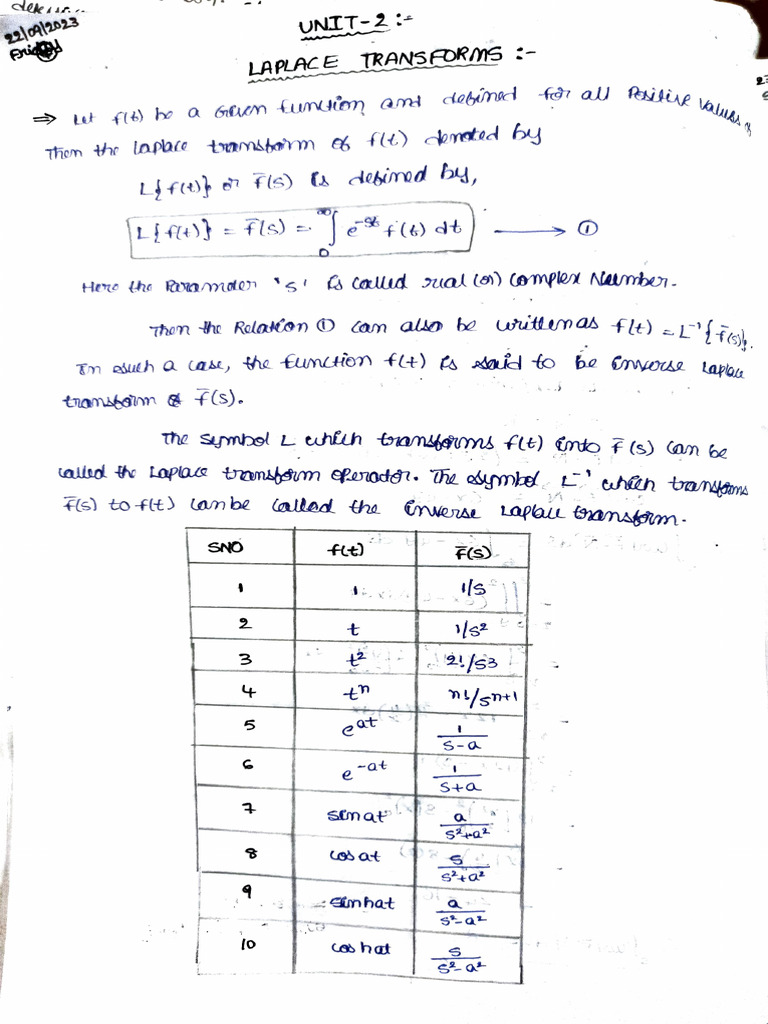 22/09/2023
UNIT-2:-
LAPLACE TRANSFORMS :-
⇒ Let f(t) be a Given function and defined for all Positive values,
Then the Laplace transform of f(t) denoted by
L{f(t)} or f̄(s) is defined by,
L{f(t)} = f̄(s) = ∫₀^∞ e^-st f(t) dt ⟶ ①
Here the Parameter 's' is called real (or) Complex Number.
Then the Relation ① can also be written as f(t) = L⁻¹{f̄(s)}.
In such a case, the function f(t) is said to be inverse Laplace
transform of f̄(s).
The symbol L which transforms f(t) into f̄(s) can be
called the Laplace transform operator. The symbol L⁻¹ which transforms
f̄(s) to f(t) can be called the inverse Laplace transform.
SNO f(t) f̄(s)
1 1 1/s
2 t 1/s²
3 t² 2!/s³
4 tⁿ n!/sⁿ⁺¹
5 e^at 1/(s-a)
6 e^-at 1/(s+a)
7 sinat a/(s²+a²)
8 cosat s/(s²+a²)
9 sinhat a/(s²-a²)
10 coshat s/(s²-a²)